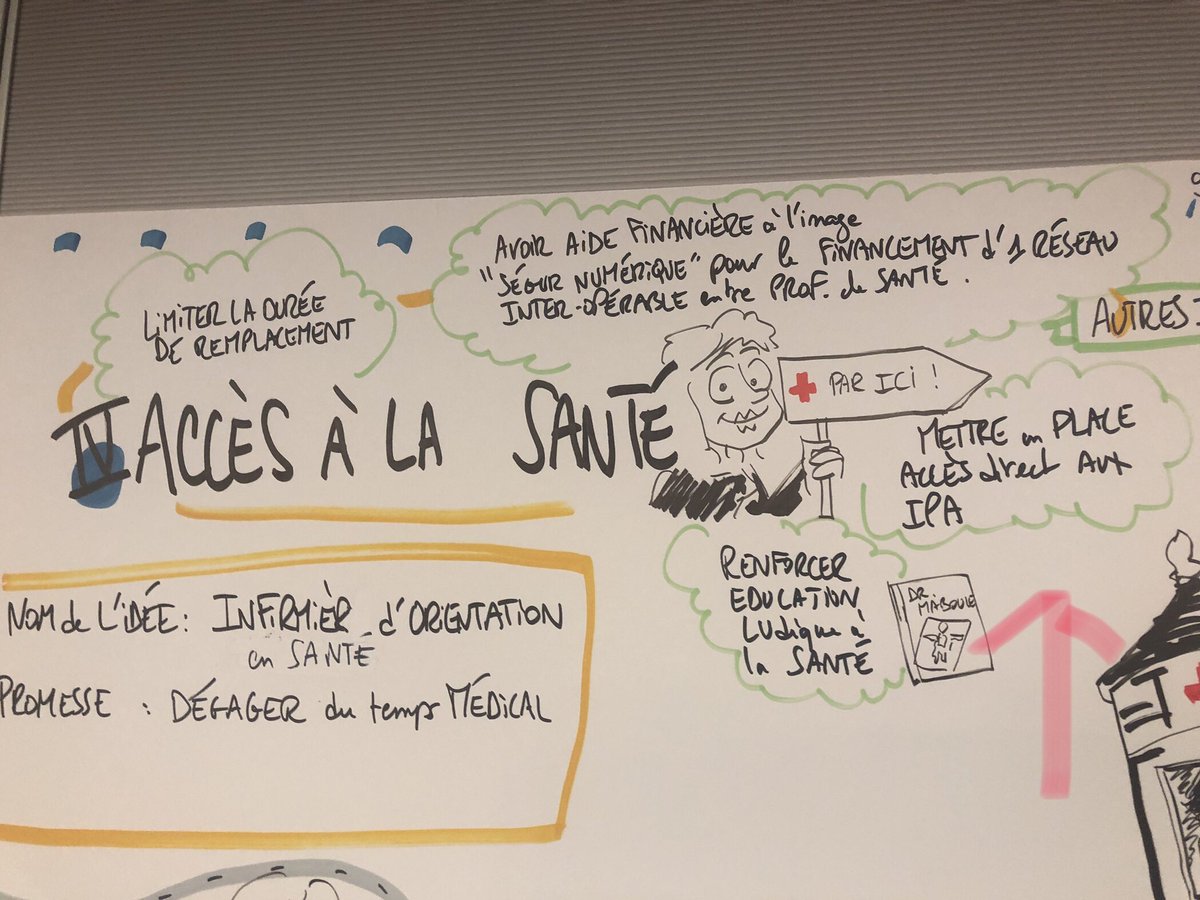 LIMITER LA DURÉE
DE REMPLACEMENT
AVOIR AIDE FINANCIÈRE à l'image
"SÉGUR NUMÉRIQUE" pour le FINANCEMENT d'1 RÉSEAU
INTER-OPÉRABLE entre PROF. de SANTÉ.
AUTRES
IV ACCÈS À LA SANTÉ
PAR ICI !
METTRE en PLACE
ACCÈS direct AUX
IPA
RENFORCER
EDUCATION
Ludique à
la SANTÉ
DR
MABOULE
NOM de L'IDÉE : INFIRMIÈR d'ORIENTATION
en SANTÉ
PROMESSE : DÉGAGER du temps MÉDICAL